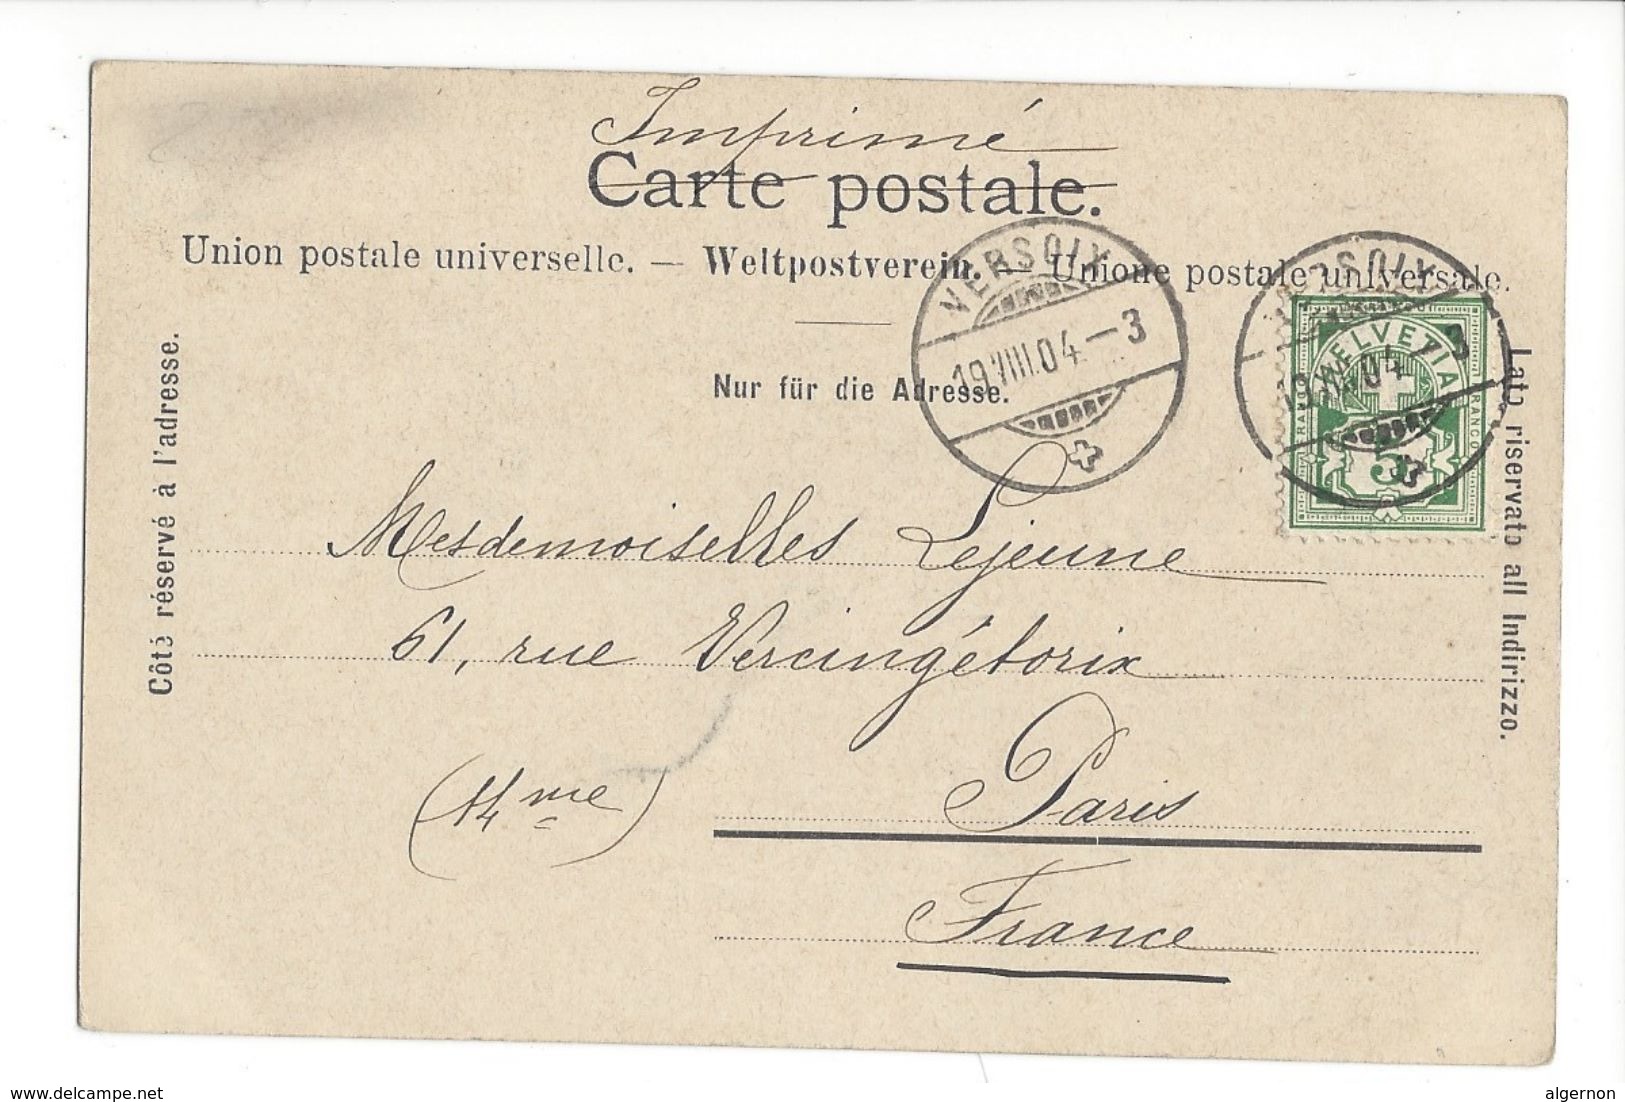 Imprimé
Carte postale.
Union postale universelle. — Weltpostverein. — Unione postale universale.
Nur für die Adresse.
Côté réservé à l'adresse.
Lato riservato all Indirizzo.
VERSOIX
19.VIII.04.–3
VERSOIX
04.–3
HELVETIA
FRANCO
FRANCO
5
Mesdemoiselles Lejeune
61, rue Vercingétorix
(14me)
Paris
France
www.delcampe.net
algernon